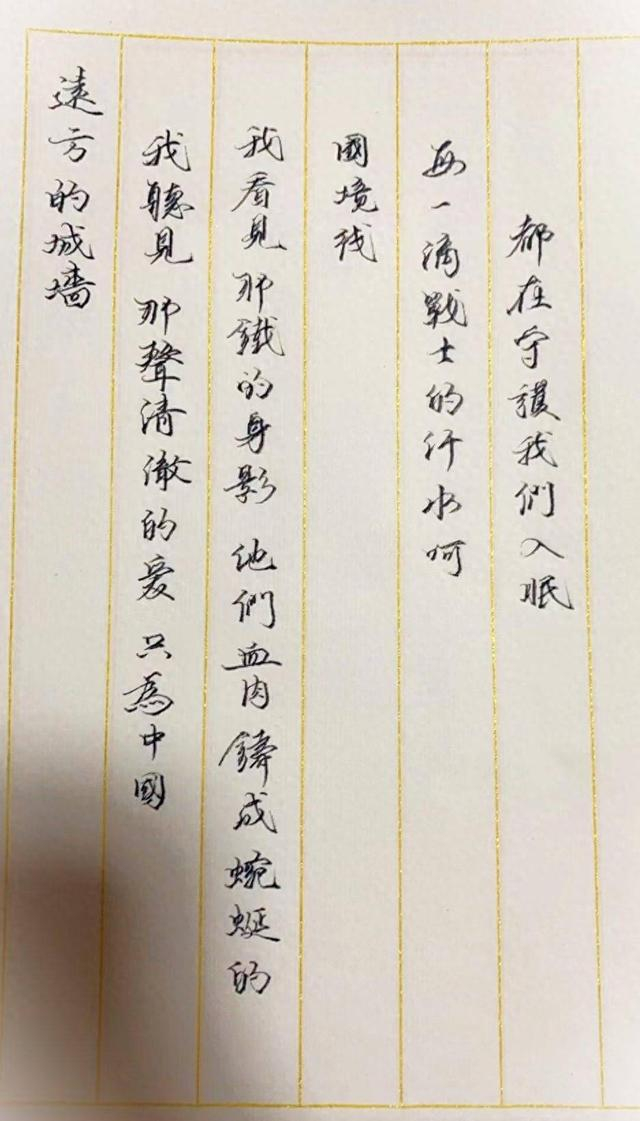 遠方的城墻
我聽見 那聲清澈的愛 只為中國
我看見 那鐵的身影 他們血肉鑄成蜿蜒的
國境线
每一滴戰士的汗水呵
都在守護我們入眠